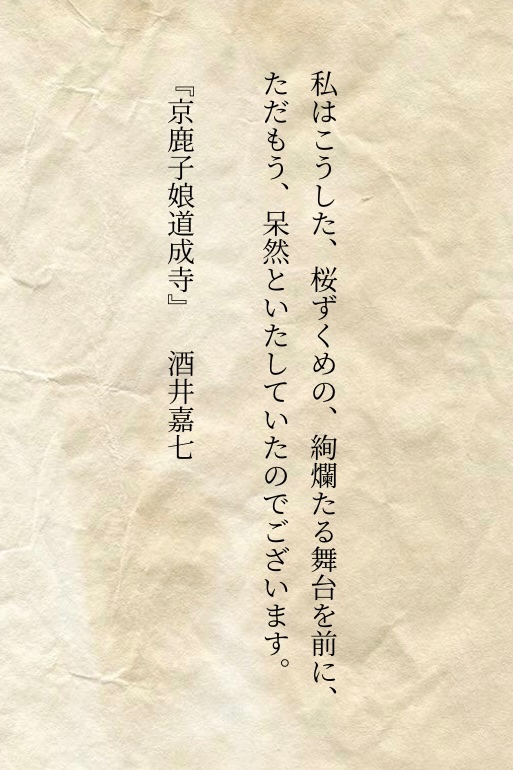 私はこうした、桜ずくめの、絢爛たる舞台を前に、
ただもう、呆然といたしていたのでございます。
『京鹿子娘道成寺』　酒井嘉七